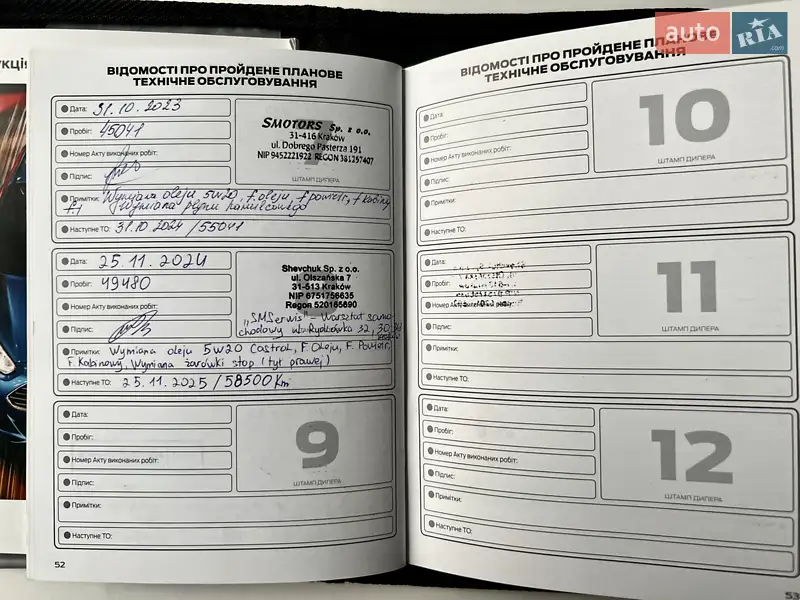 auto RIA .com
КЦІЯ
ВІДОМОСТІ ПРО ПРОЙДЕНЕ ПЛАНОВЕ
ТЕХНІЧНЕ ОБСЛУГОВУВАННЯ
Дата: 31.10.2023
Пробіг: 45041
Номер Акту виконаних робіт:
Підпис:
SMOTORS Sp. z o.o.
31-416 Kraków
ul. Dobrego Pasterza 191
NIP 9452221922 REGON 381257407
ШТАМП ДИЛЕРА
Примітки: Wymiana oleju 5w20, f. oleju, f powietr, f kabiny
Wymiana płynu hamulcowego
Наступне ТО: 31.10.2024 /55041
Дата: 25.11.2024
Пробіг: 49480
Номер Акту виконаних робіт:
Підпис:
Shevchuk Sp. z o.o.
ul. Olszańska 7
31-513 Kraków
NIP 6751756635
Regon 520165690
„SMSerwis" - Warsztat samo
chodowy ul. Rydlówka 32, 30-
Примітки: Wymiana oleju 5w20 Castrol, F. Oleju, F. Powietr,
F. Kabinowy, Wymiana żarówki stop (tył prawej)
Наступне ТО: 25.11.2025 / 58500 Km
Дата:
Пробіг:
Номер Акту виконаних робіт:
Підпис:
9
ШТАМП ДИЛЕРА
Примітки:
Наступне ТО:
52
ВІДОМОСТІ ПРО ПРОЙДЕНЕ ПЛАНОВЕ
ТЕХНІЧНЕ ОБСЛУГОВУВАННЯ
Дата:
Пробіг:
Номер Акту виконаних робіт:
Підпис:
10
ШТАМП ДИЛЕРА
Примітки:
Наступне ТО:
Дата:
Пробіг:
Номер Акту виконаних робіт:
Підпис:
11
ШТАМП ДИЛЕРА
Примітки:
Наступне ТО:
Дата:
Пробіг:
Номер Акту виконаних робіт:
Підпис:
12
ШТАМП ДИЛЕРА
Примітки:
Наступне ТО:
53